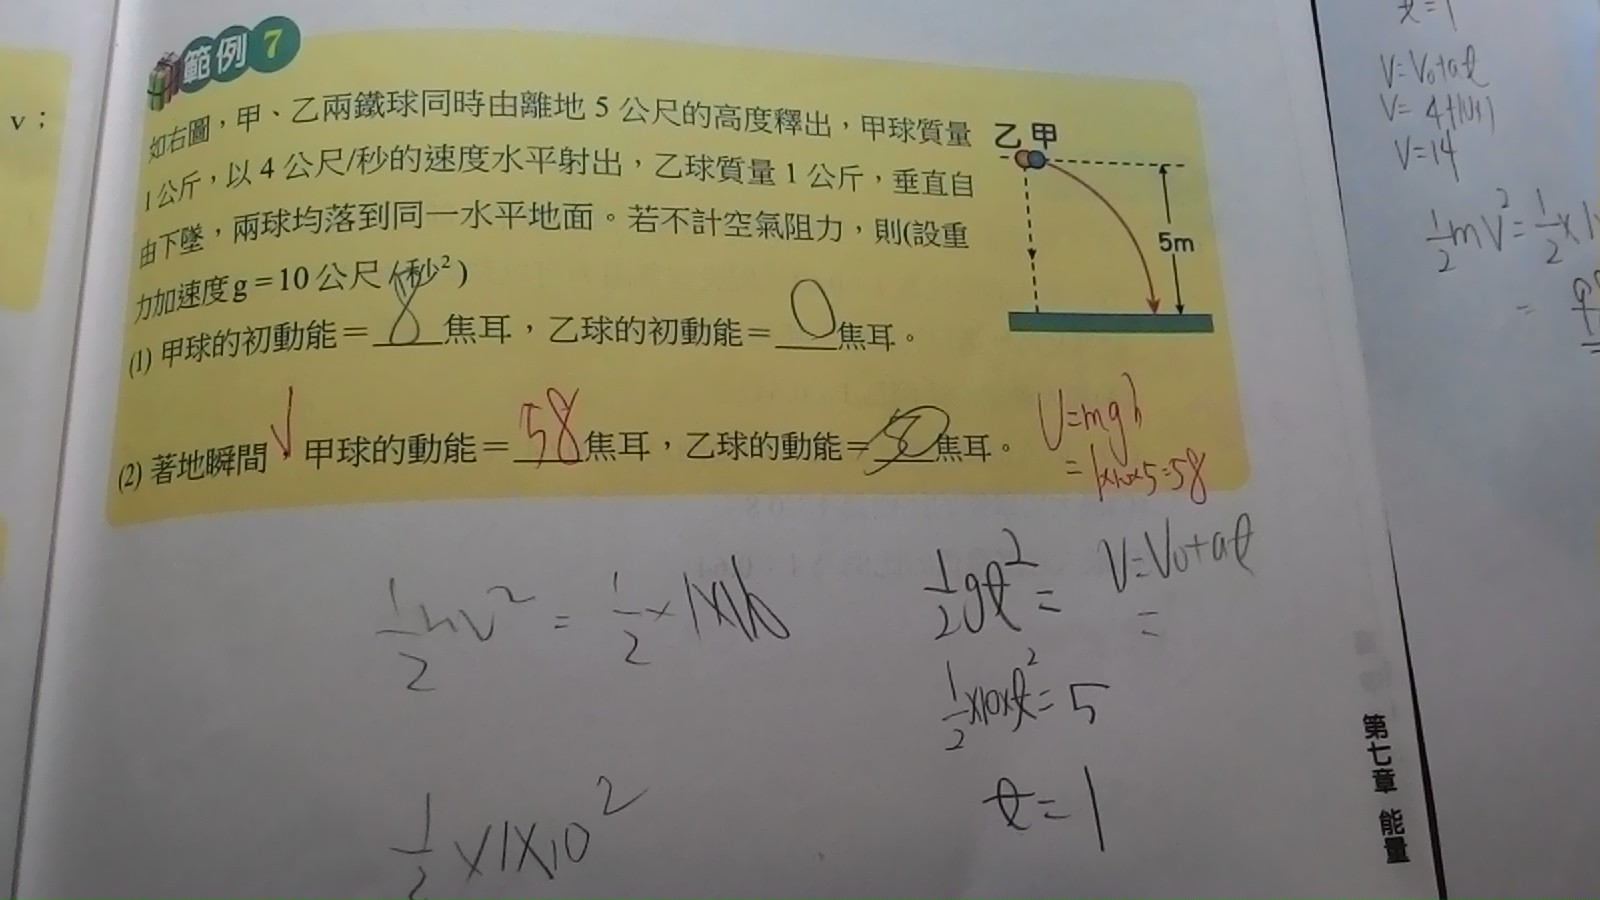 v；
範例 7
如右圖，甲、乙兩鐵球同時由離地 5 公尺的高度釋出，甲球質量
1 公斤，以 4 公尺/秒的速度水平射出，乙球質量 1 公斤，垂直自
由下墜，兩球均落到同一水平地面。若不計空氣阻力，則(設重
力加速度 g = 10 公尺/秒²)
乙 甲
5m
(1) 甲球的初動能＝ 8 焦耳，乙球的初動能＝ 0 焦耳。
(2) 著地瞬間 √ 甲球的動能＝ 58 焦耳，乙球的動能＝ 50 焦耳。
U=mgh
= 1×10×5=58
½mv² = ½×1×16
½×1×10²
½gt² =
½×10×t² = 5
t = 1
V=V0+at
=
第七章 能量
t=1
V=V0+at
V= 4+10×1
V=14
½mV²=½×1
=